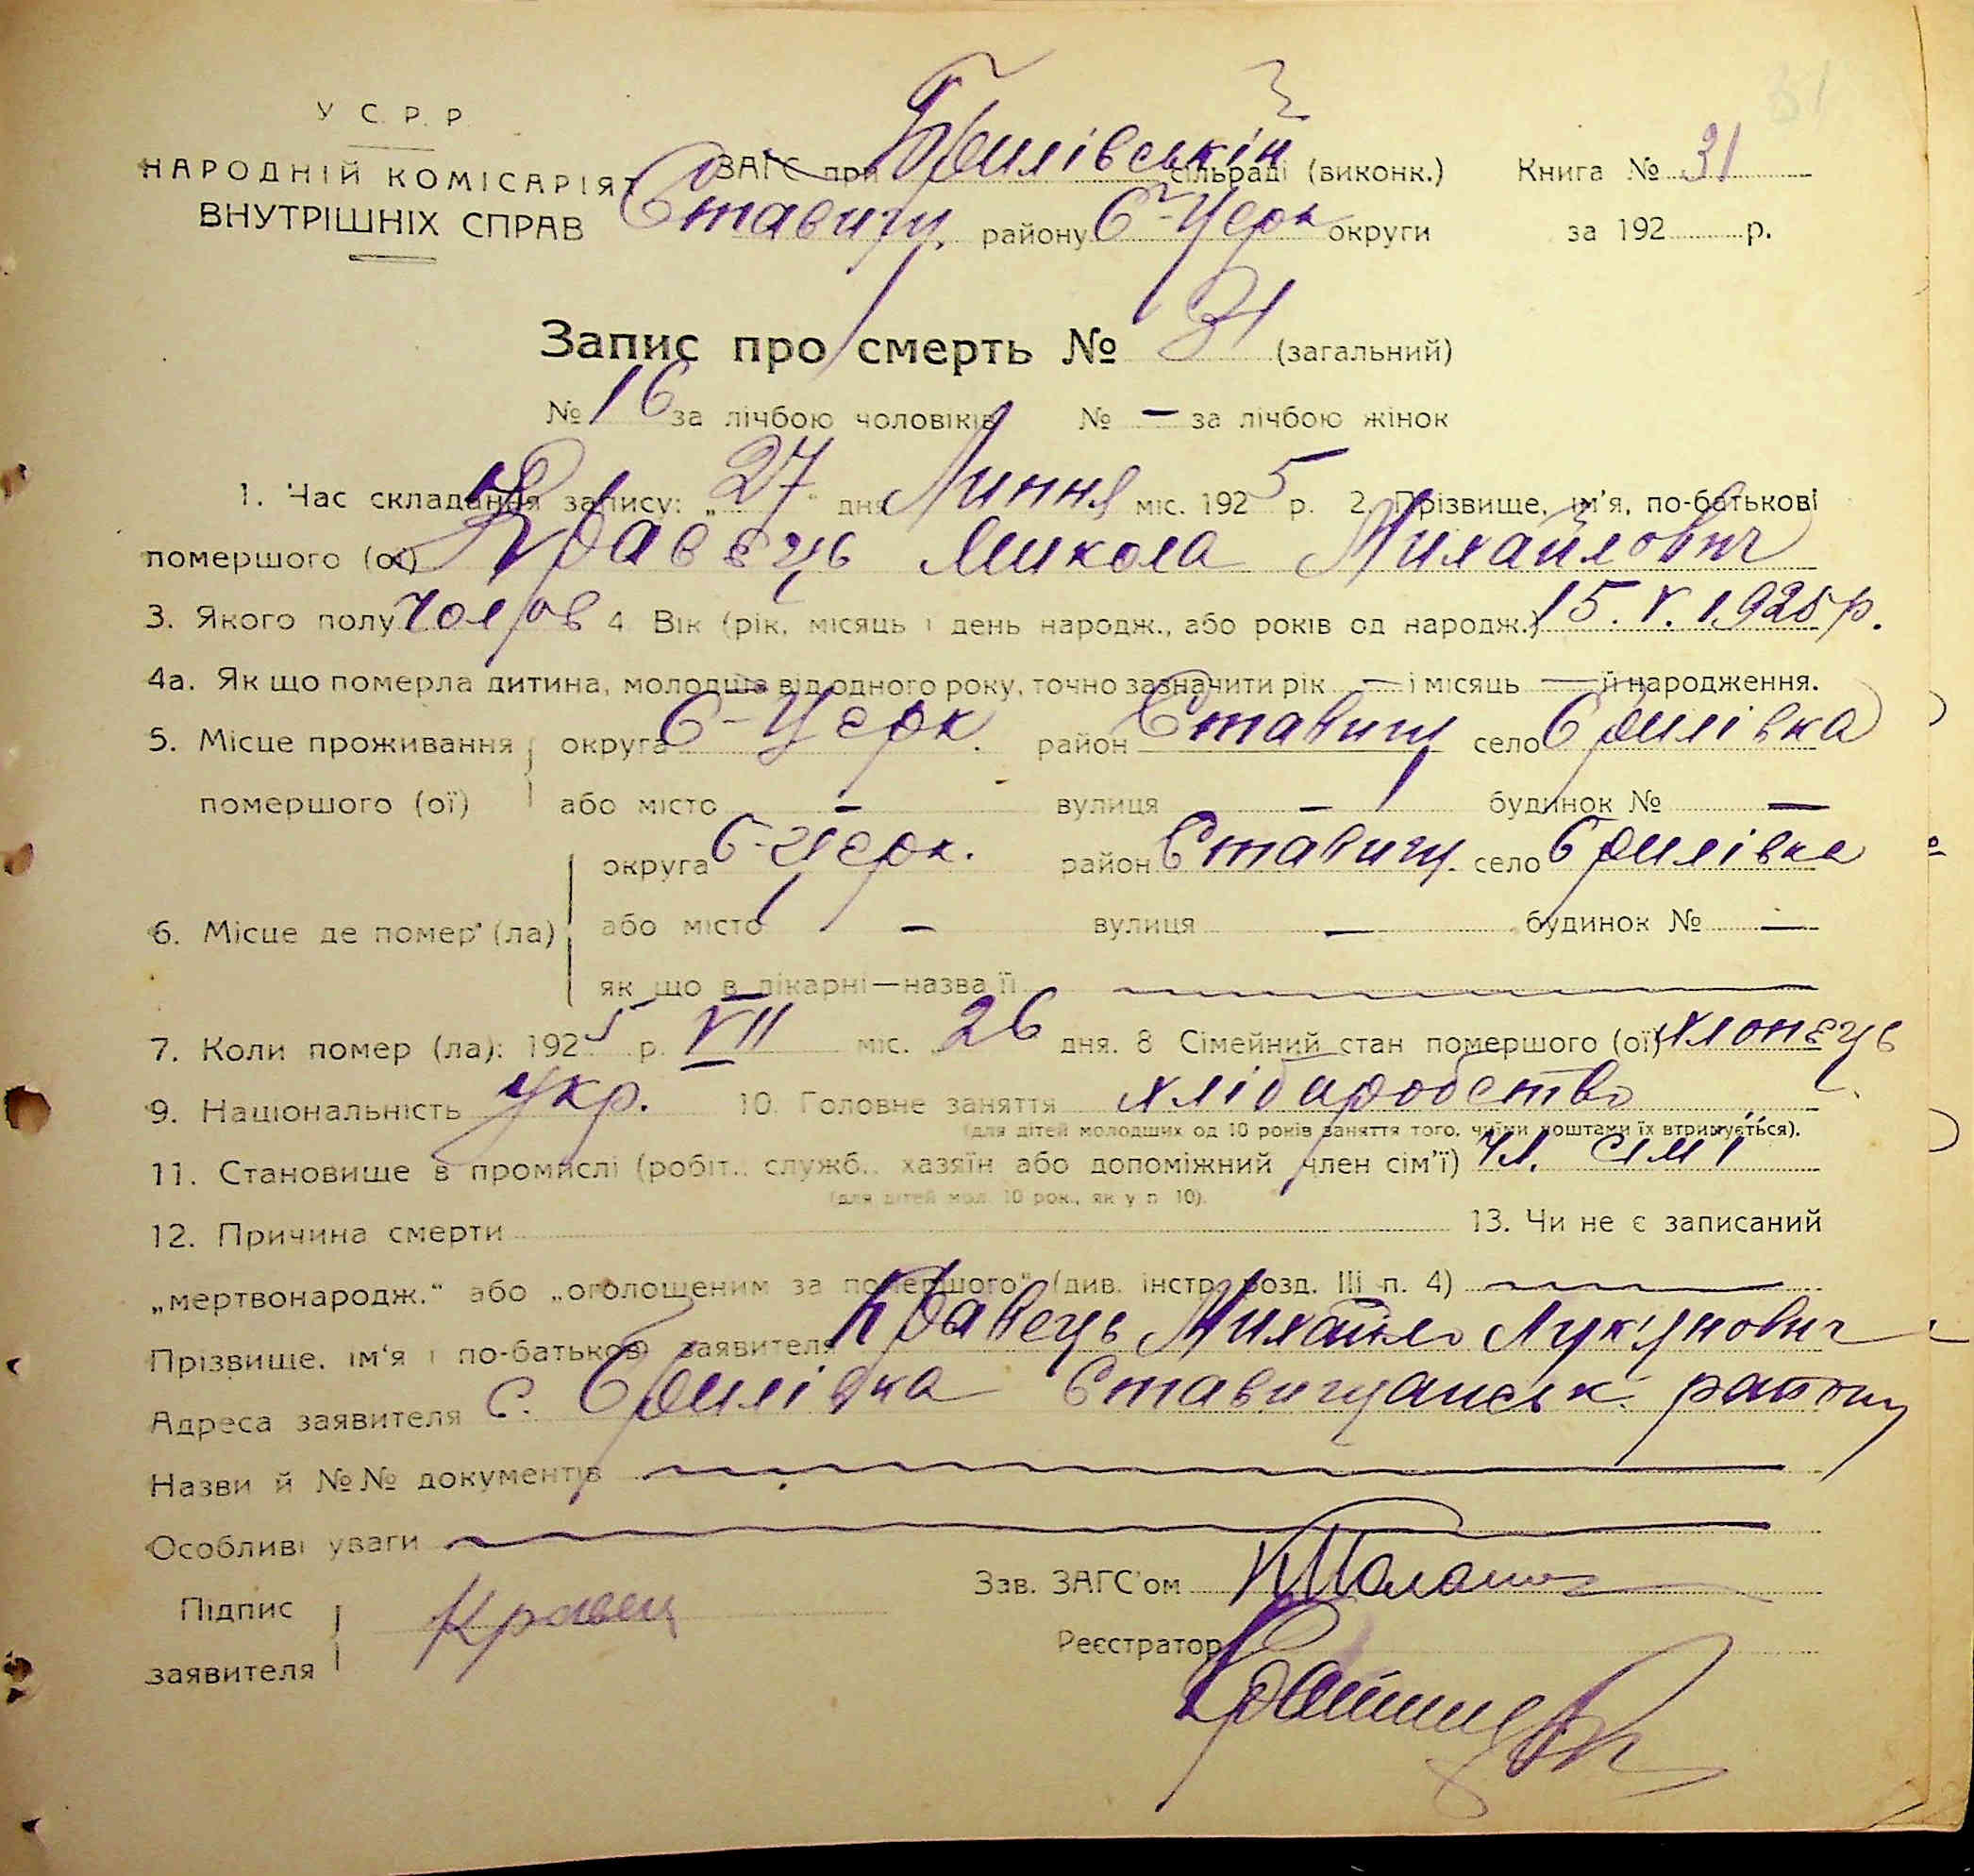 У С. Р. Р.
НАРОДНІЙ КОМІСАРІЯТ
ВНУТРІШНІХ СПРАВ
ЗАГС при Брилівській сільраді (виконк.) Книга № 31
Ставищ. району Б-Церк округи за 192 р.
Запис про смерть № 31 (загальний)
№ 16 за лічбою чоловіків № — за лічбою жінок
1. Час складання запису: „27" дня Липня міс. 1925 р. 2. Прізвище, ім'я, по-батькові
помершого (ої) Кравець Микола Михайлович
3. Якого полу чолов 4. Вік (рік, місяць і день народж., або років од народж.) 15. V. 1925 р.
4а. Як що померла дитина, молодша від одного року, точно зазначити рік — і місяць — й народження.
5. Місце проживання округа Б-Церк. район Ставищ село Брилівка
помершого (ої) або місто — вулиця — будинок № —
округа Б-Церк. район Ставищ. село Брилівка
6. Місце де помер (ла) або місто — вулиця — будинок № —
як що в лікарні—назва її
7. Коли помер (ла): 1925 р. VII міс. 26 дня. 8 Сімейний стан помершого (ої) хлопець
9. Національність Укр. 10. Головне заняття хліборобство
(для дітей молодших од 10 років заняття того, чиїми коштами їх втримується).
11. Становище в промислі (робіт., служб., хазяїн або допоміжний член сім'ї) чл. сімї
(для дітей мол. 10 рок., як у п 10).
12. Причина смерти 13. Чи не є записаний
„мертвонародж." або „оголошеним за помершого" (див. інстр. розд. III п. 4)
Прізвище, ім'я і по-батькові заявителя Кравець Михайло Лук'янович
Адреса заявителя с. Брилівка Ставищанськ. району
Назви й №№ документів
Особливі уваги
Зав. ЗАГС'ом
Підпис
заявителя Кравец
Реєстратор